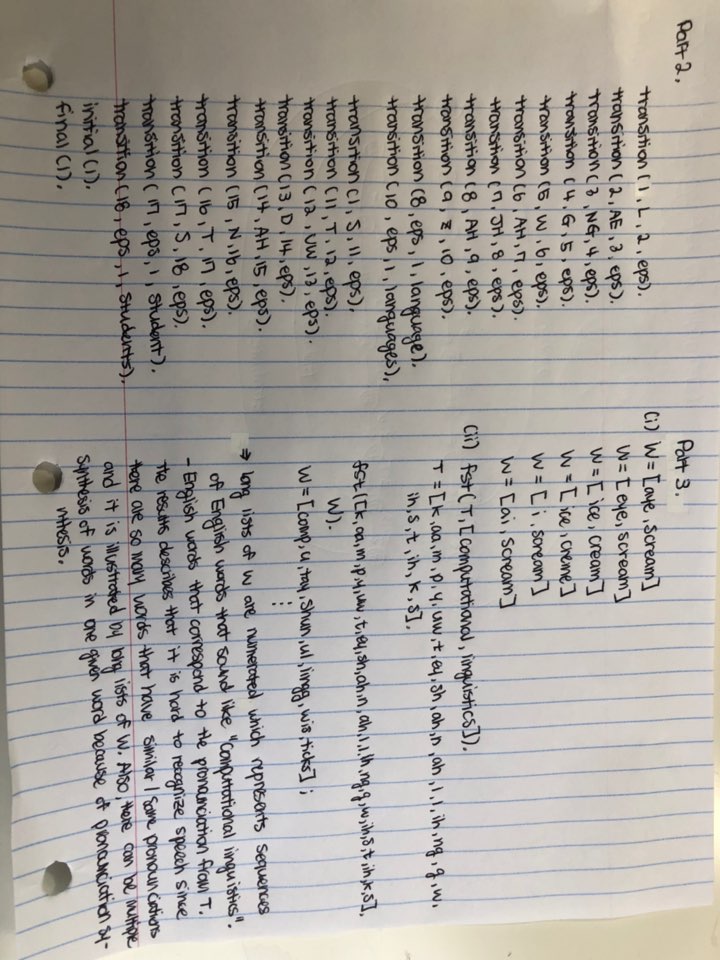 Part 2.
transition (1, L, 2, eps).
transition (2, AE, 3, eps).
transition (3, NG, 4, eps).
transition (4, G, 5, eps).
transition (5, W, 6, eps).
transition (6, AH, 7, eps).
transition (7, JH, 8, eps).
transition (8, AH, 9, eps).
transition (9, Z, 10, eps).
transition (8, eps, 1, language).
transition (10, eps, 1, languages).
transition (1, S, 11, eps).
transition (11, T, 12, eps).
transition (12, UW, 13, eps).
transition (13, D, 14, eps).
transition (14, AH, 15, eps).
transition (15, N, 16, eps).
transition (16, T, 17, eps).
transition (17, S, 18, eps).
transition (17, eps, 1, student).
transition (18, eps, 1, students).
initial (1).
final (1).
Part 3.
(i) W = [aye, scream]
W = [eye, scream]
W = [ice, cream]
W = [ice, creme]
W = [i, scream]
W = [ai, scream]
(ii) fst (T, [computational, linguistics]).
T = [k, aa, m, p, y, uw, t, ey, sh, ah, n, ah, l, l, ih, ng, g, w,
ih, s, t, ih, k, s].
fst ([k, aa, m, p, y, uw, t, ey, sh, ah, n, ah, l, l, ih, ng, g, w, ih, s, t, ih, k, s],
W).
W = [comp, u, tay, shun, ul, lingg, wis, ticks] ;
⋮
⇒ long lists of W are numerated which represents sequences
of English words that sound like "Computational linguistics".
- English words that correspond to the pronunciation from T.
the results describes that it is hard to recognize speech since
there are so many words that have similar / same pronounciations
and it is illustrated by long lists of W. Also, there can be multiple
synthesis of words in one given word because of pronunciation sy-
nthesis.